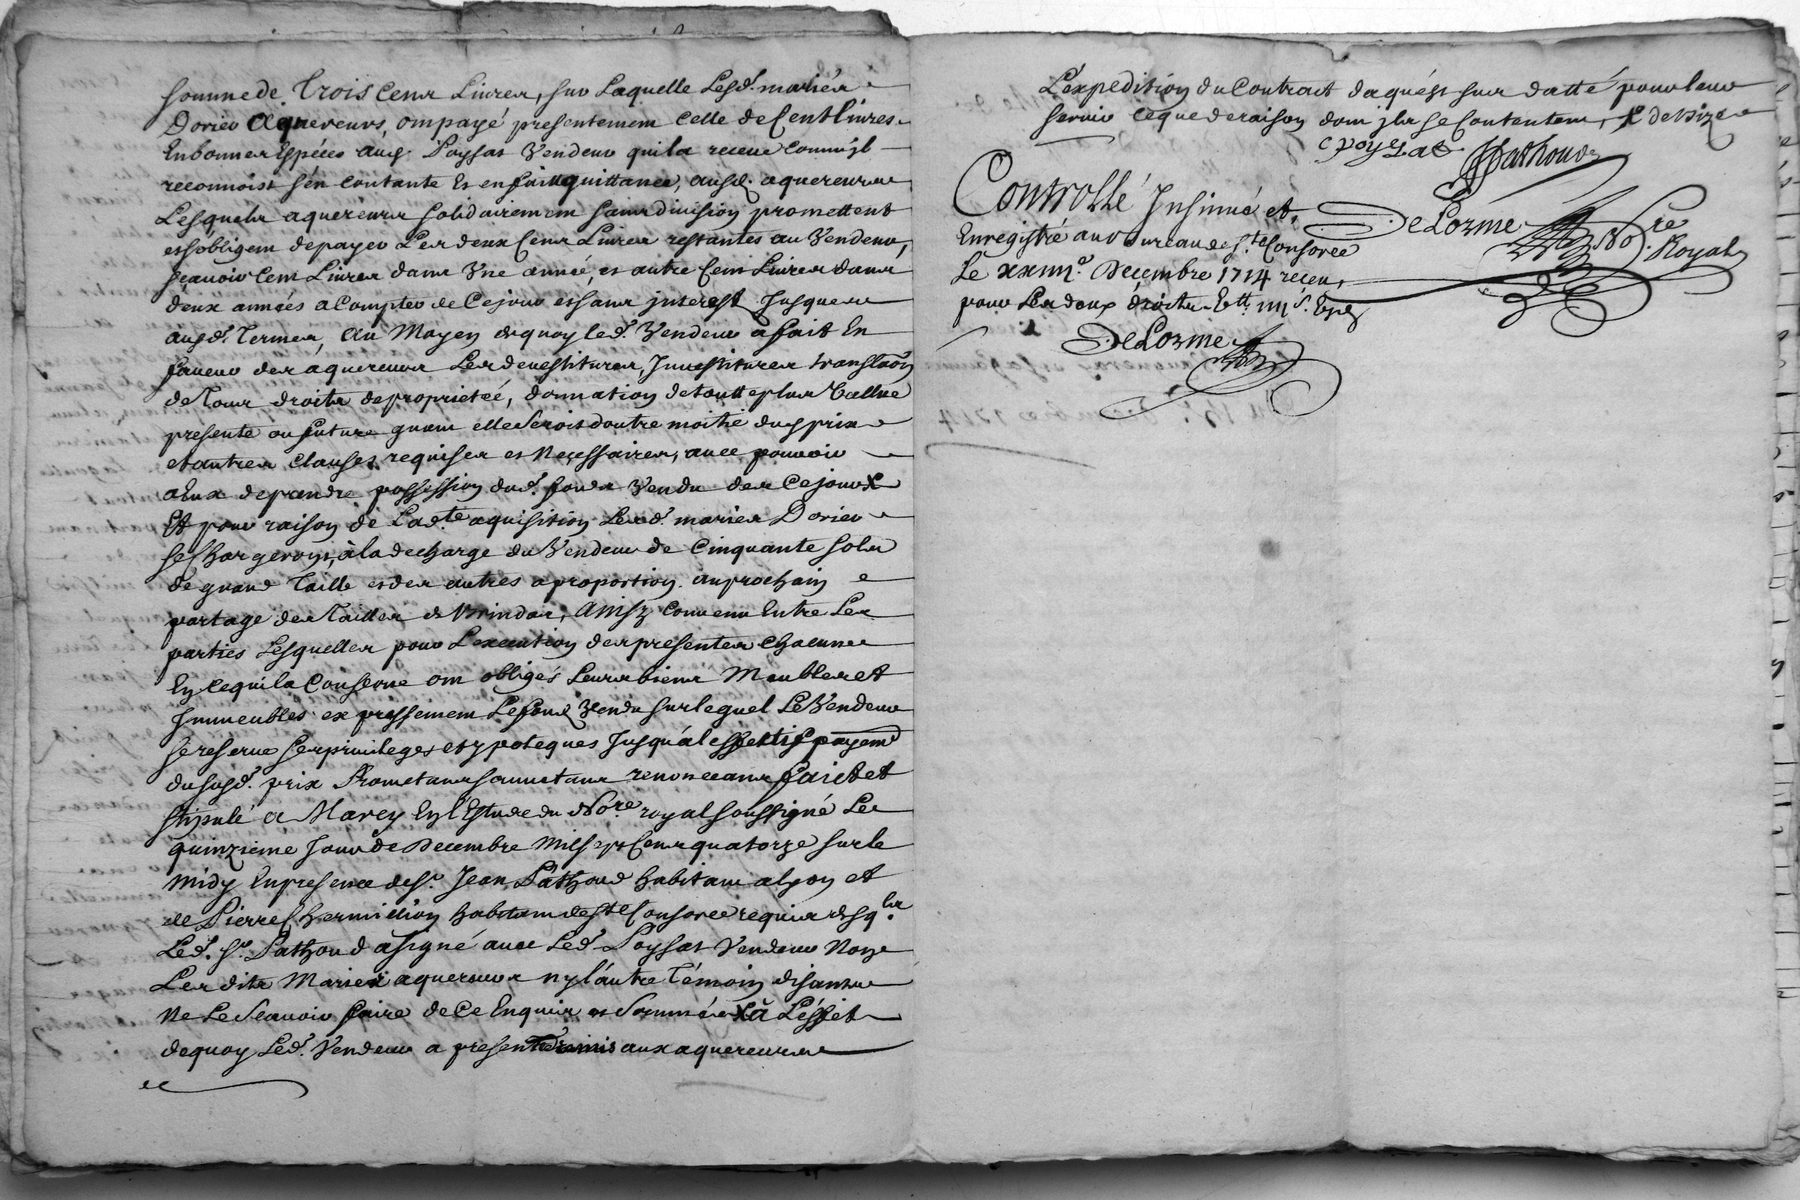 somme de Trois Cens Livres, sur Laquelle Lesd. mariés
Dorier aquereurs, ont payé presentement Celle de Cent Livres
En bonnes Espéces aud. Poysat Vendeur qui la receue comm'jl
reconnoist s'en contante Et en fait quittance, ausd. aquereurs
Lesquels aquereurs solidairement sans division promettent
et s'obligent de payer Les deux Cens Livres restantes au Vendeur,
sçauoir Cent Livres dans Vne année, et autre Cent Livres dans
deux années a Compter de Ce jour et sans jnterest Jusques
ausd. Termes, Au Moyen de quoy led. Vendeur a fait En
faueur des aquereurs Les deuestitures, Jnuestitures translaon
de Tous droits de proprieteé, donnation de toutte plus Vallue
presente ou future quant elle Serois d'outre moitié dus prix
et autres Clauses requises et Necessaires, auec pouuoir
a Eux de prendre possession dud. fonds Vendu des Ce jour
Et pour raison de Lad.te aquisition Lesd. mariés Dorier
se Chargeront, à la decharge du Vendeur de Cinquante sols
de grand Taille et des autres a proportion au prochain
partage des Tailles de Brindas, Ainsy Conuenu Entre Les
parties Lesquelles pour L'execution des presentes Chacune
En Ce qui la Conserne ont obligés Leurs biens Meubles et
Jmmeubles expressement Le fond Vendu sur lequel Le Vendeur
se reserue ses priuileges et ypoteques Jusqu'à l'effectif payemt
du susd. prix Promettans soumettans renonceans faict et
stipulé a Marcy En l'Estude du No.re royal soussigné Le
quinzieme Jour de Decembre Mil sept Cens quatorze sur le
midy En presence de sr. Jean Pathoud habitant a Lyon et
de Pierre Chermillion habitant de Ste Consorce requis desq.ls
Led. sr. Pathoud a signé auec Led. Poysat Vendeur Non
Les dits Mariés aquereurs ny l'autre Témoin disants
Ne Le Sçauoir faire de Ce Enquis et Sommés à L'éffet
de quoy Led. Vendeur a present remis aux aquereurs
L'expedition du Contract d'aquest sus datté pour leur
seruir Ce que de raison dont jls se Contentent,
c poyzat Pathoud
Controllé Jnsinué et
Enregistré au bureau de S.te Consorce
Le xxiiij.e Decembre 1714 receu
pour Les deux droits
DeLorme No.re Royal
DeLorme